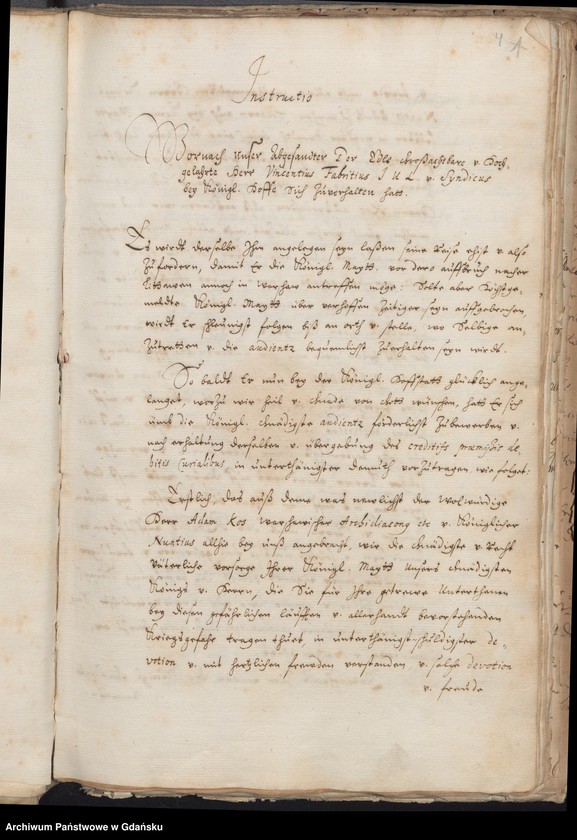 4
Instructio
Wornach Unser Abgesandter Der Edle Großachtbare v. Hoch
gelahrte Herr Vincentius Fabritius I U L. v. Syndicus
bey Königl. Hoffe Sich zuverhalten hatt.
Es wirdt derselbe Ihm angelegen seyn laßen seine Reise ehist v. also
zufordern, damit Er die Königl. Maytt. vor dero auffbruch nacher
Littawen annoch in Warschaw antreffen möge: Solte aber Höchstge-
meldte Königl. Maytt über verhoffen zeitiger seyn auffgebrochen,
wirdt Er schleunigst folgen biß an orth v. stelle, wo Selbige an-
zutretten v. die audientz bequemlichst zuerhalten seyn wirdt.
So baldt Er nun bey der Königl. Hoffstatt glücklich ange-
langet, worzu wir heil v. Gnade von Gott wünschen, hatt Er sich
umb die Königl. Gnädigste audientz förderlichst zubewerben v.
nach erhaltung derselben v. übergebung des creditifs praemissis de-
bitis Curialibus, in unterthänigster demuth vorzutragen, wie folget:
Erstlich, das auß deme was newlichst der Wolwürdige
Herr Adam Kos Warschawischer Archidiaconus etc v. Königlicher
Nuntius allhie bey unß angebracht, wir die Gnädigste v. Recht
Väterliche vorsorge Ihrer Königl. Maytt Unsers Gnädigsten
Königs v. Herrn, die Sie für Ihre getrewe Unterthanen
bey diesen gefährlichen läufften v. allerhandt bevorstehenden
Kriegsgefahr tragen thuet, in unterthänigst-schuldigster de-
votion v. mit hertzlichen frewden verstanden v. solche devotion
v. frewde
Archiwum Państwowe w Gdańsku